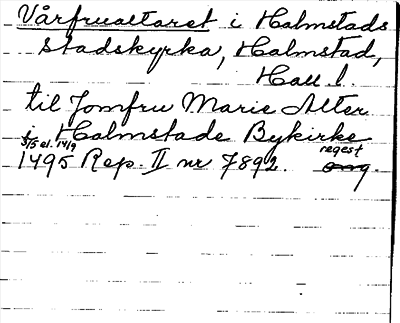 Vårfrualtaret i Halmstads
stadskyrka, Halmstad,
Hall l.
til Jomfru Marie Alter
i Halmstade Bykirke
3/5 el. 14/9 regest
1495 Rep. II nr 7892. orig.